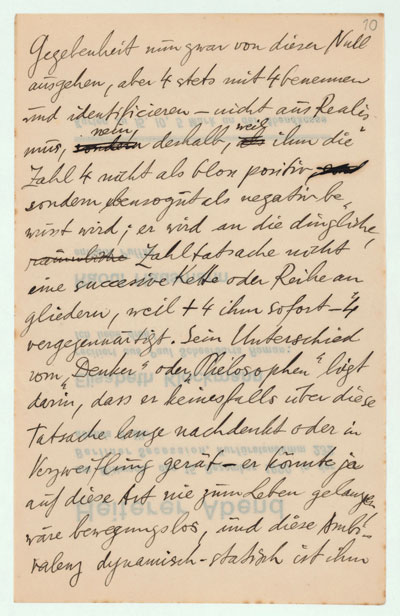 10
Gegebenheit nun zwar von dieser Null
ausgehen, aber 4 stets mit 4 benennen
und identificieren – nicht aus Realis-
mus, nein, deshalb, weil ihm die
Zahl 4 nicht als blos positiv
sondern ebensogut als negativ be-
wusst wird; er wird an die dingliche,
räumliche Zahltatsache nicht
eine succesive Kette oder Reihe an
gliedern, weil + 4 ihm sofort – 4
vergegenwärtigt. Sein Unterschied
vom „Denker“ oder „Philosophen“ liegt
darin, dass er keinesfalls über diese
Tatsache lange nachdenkt oder in
Verzweiflung gerät – er könnte ja
auf diese Art nie zum Leben gelangen,
wäre bewegungslos, und diese Ambi-
valenz dynamisch-statisch ist ihm
Heiterer Abend